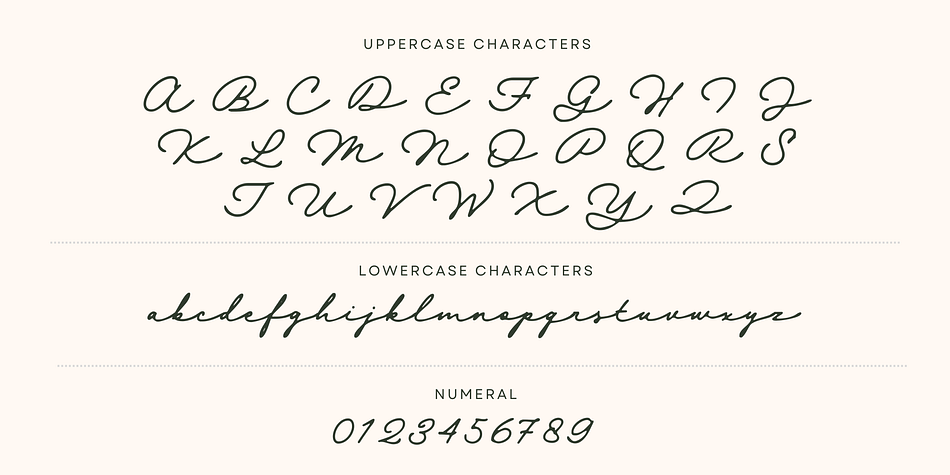 UPPERCASE CHARACTERS
A B C D E F G H I J
K L M N O P Q R S
T U V W X Y Z
LOWERCASE CHARACTERS
abcdefghijklmnopqrstuvwxyz
NUMERAL
0123456789